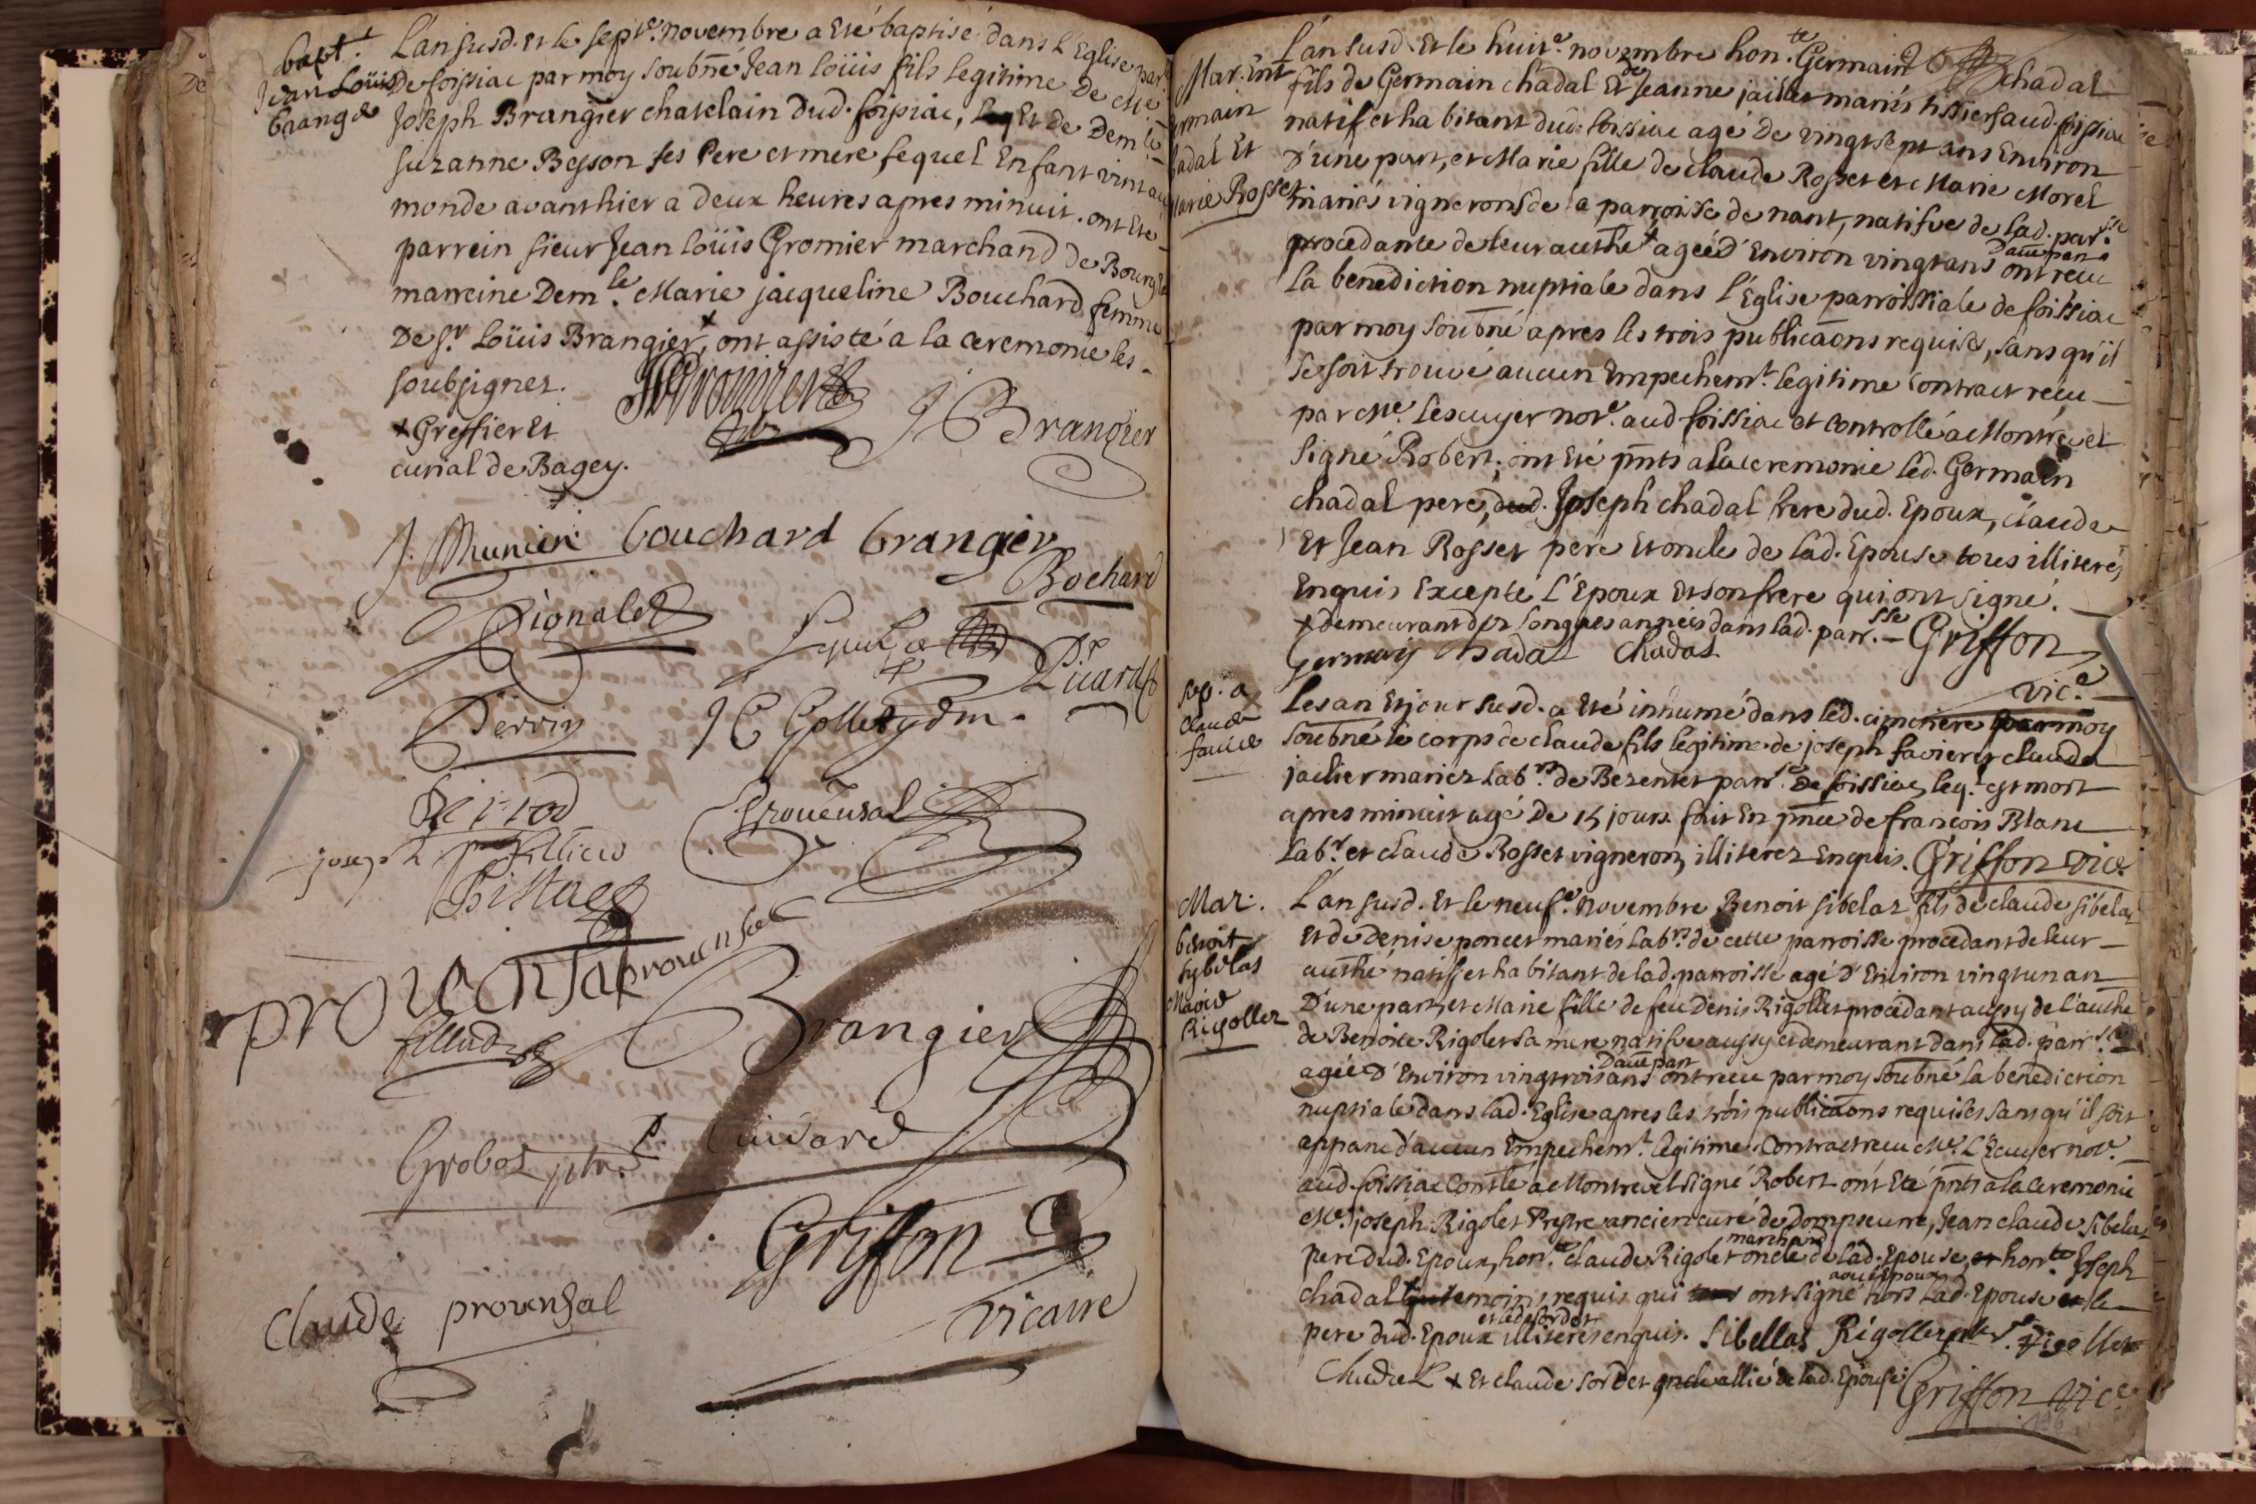 bapt.t
Jean Loüis
brangé
L'an susd. Et le sept.e novembre a Eté baptisé dans l'Eglise par
De foissiac par moy soubné Jean loüis fils legitime De Me
Joseph Brangier chatelain Dud. foissiac, Et de Dem.le
suzanne Besson ses Pere et mere lequel Enfant vint au
monde avanthier a deux heures apres minuit. ont Eté
parrein sieur Jean loüis Gromier marchand de Bourg la
marreine Dem.le Marie jacqueline Bouchard femme
De s.r Loüis Brangier x, ont assisté a la ceremonie les
soubsignez.
x Greffier Et
curial de Bagey.
Gromier
J Brangier
J. Munier bouchard brangier
Bochard
Pignalet
Picard
Perrin J C Gollety dm.
Perrod Prouensal
joseph fillieu
Pistaes
provensal provensal
fillieud Brangier
Grobos ptre P. Cuidard
Griffon
vicaire
Claude provensal
Mar. Ent
Germain
Chadal Et
Marie Rosset
L'an susd. Et le huit.e novembre hon.te Germain chadal
fils de Germain chadal Et de Jeanne jailler mariés tissiers aud. foissiac
natif et habitant dud. foissiac agé De vingt sept ans Environ
D'une part, et Marie fille de claude Rosset et Marie Morel
mariés vignerons de la parroisse de nant, natifve de lad. parr.sse
procedante de leur authé x agéé d'Environ vingt ans D'autre part ont reçu
la benediction nuptiale dans l'Eglise parroissiale de foissiac
par moy soubné apres les trois publicaons requise, sans qu'il
se soit trouvé aucun Empechem.t legitime contract reçu
par Me. Lescuyer nor.e aud. foissiac et controllé a Montrevel
signé Robert, ont Eté pnts a la ceremonie led. Germain
chadal pere, Joseph chadal frere dud. Epoux, claude
Et Jean Rosset pere Et oncle de lad. Epouse tous illiterés
Enquis Excepté L'Epoux Et son frere qui ont signé.
x demeurant dpz longues années dans lad. parr.sse Griffon
germain chadal Chadal vic.e
sep. a
claude
favier
Les an Et jour susd. a Eté inhumé dans led. cimetiere par moy
soubné le corps de claude fils legitime de joseph favier et claude
jaclier mariez Lab.rs de Bezentet parr.se De foissiac, leq.l est mort
apres minuit agé De 15 jours fait En pnce de francois Blanc
Lab.r et claude Rosset vigneron, illiterez Enquis. Griffon vic.e
Mar.
benoit
sybelas
Marie
Rigollez
L'an susd. Et le neuf.e Novembre Benoit sibelas fils de claude sibelas
Et de Denise poncet mariés Lab.rs de cette parroisse procedant de leur
authé natif et habitant de lad. parroisse agé d'Environ vingt un an
D'une part, et Marie fille de feu Denis Rigollet procedant aussy de l'authé
de Benoite Rigolet sa mere natifve aussy et demeurant dans lad. parr.sse
agéé d'Environ vingt trois ans D'autre part ont reçu par moy soubné la benediction
nuptiale dans lad. Eglise apres les trois publicaons requises sans qu'il soit
apparu d'aucun Empechem.t legitime Contract reçu Me. L'Ecuyer nor.e
aud. foissiac Contlé a Montrevel signé Robert. ont Eté pnts a la Ceremonie
Me. joseph Rigolet Prestre ancien curé de Dompseurre, Jean claude sibelas
pere dud. Epoux, hon.te claude Rigolet marchand oncle de lad. Epouse, et hon.te Joseph
chadal x temoins requis qui ont signé hors Lad. Epouse et le
pere dud. Epoux et led. sordet illiterés enquis. Sibellas Rigollez ptre Rigollet
Chadal x Et claude sordet oncle allié de lad. Epouse Griffon vic.e